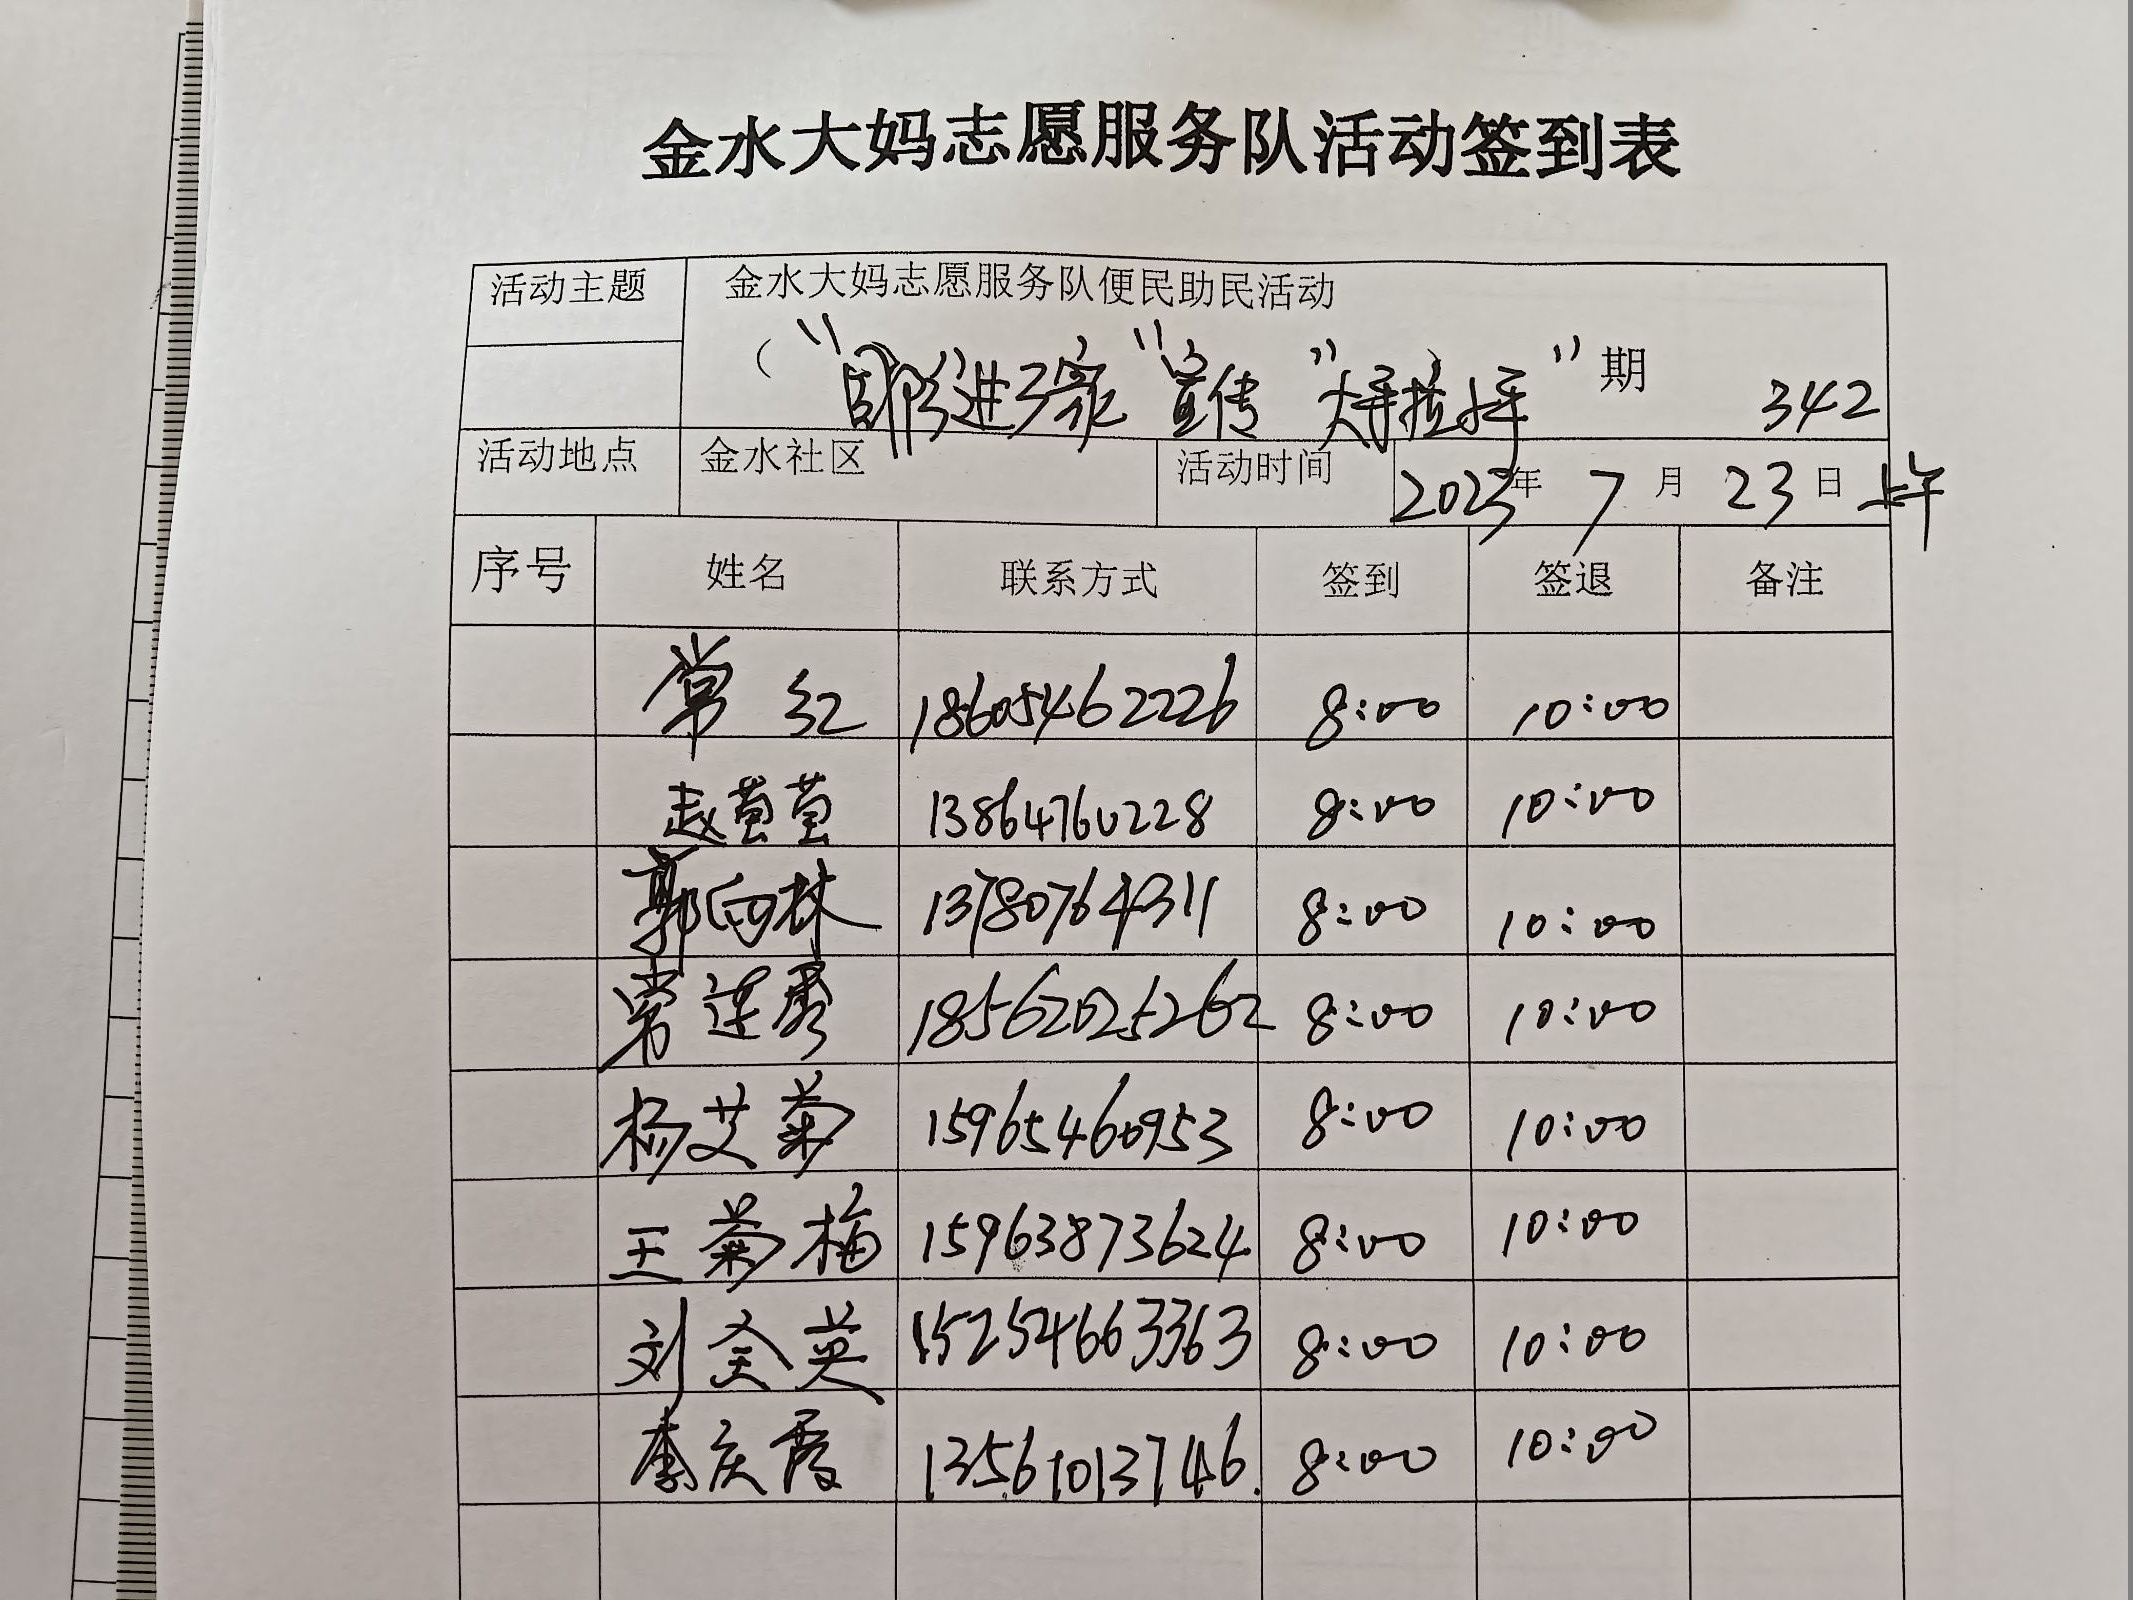 金水大妈志愿服务队活动签到表
活动主题 金水大妈志愿服务队便民助民活动
（ 进 家" "宣传" ）期 342
活动地点 金水社区 活动时间 2023年 7月 23日 上午
序号 姓名 联系方式 签到 签退 备注
常红 18605462226 8:00 10:00
赵萤萤 13864760228 8:00 10:00
郭向林 13780764311 8:00 10:00
常莲秀 18562025262 8:00 10:00
杨艾菊 15965460953 8:00 10:00
王菊梅 15963873624 8:00 10:00
刘全英 15254663363 8:00 10:00
李庆霞 13561013746. 8:00 10:00